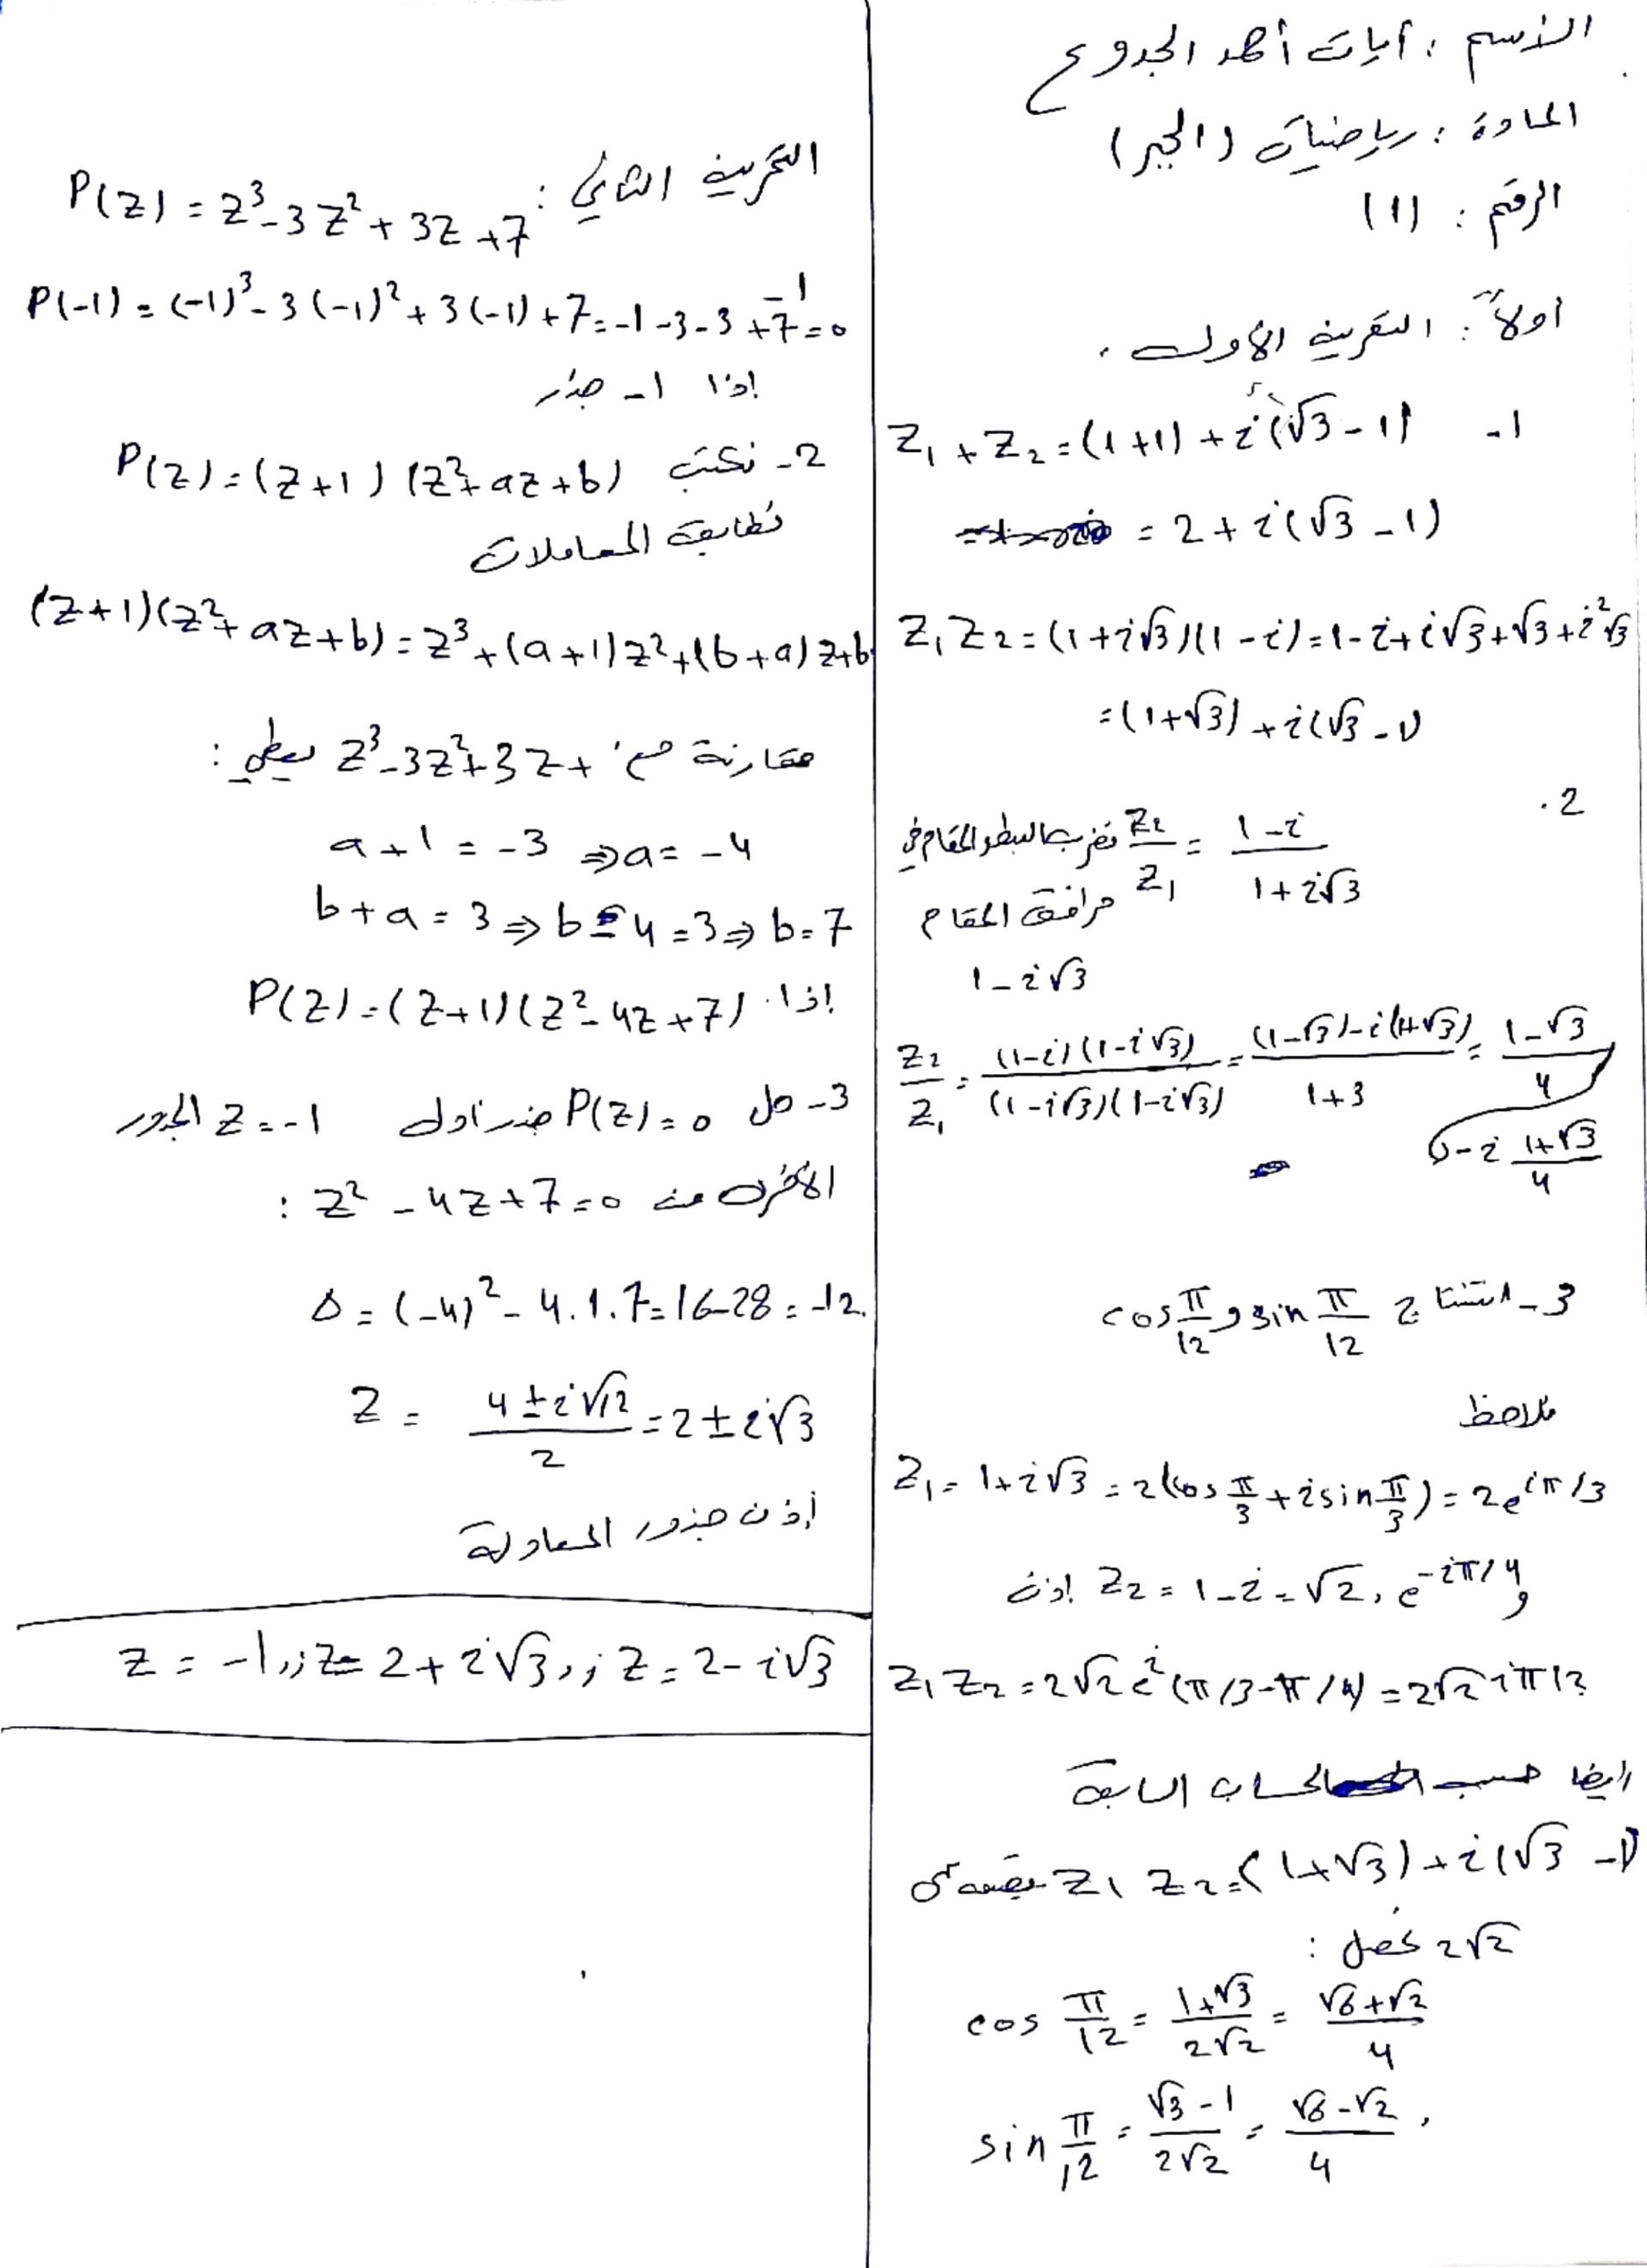 الأسم : آيات أحمد الجدوع
المادة : رياضيات (الجبر)
الرقم : (1)
اولاً : التمرين الأول .
1- Z₁ + Z₂ = (1+1) + i(√3 - 1)
= 2 + i(√3 - 1)
Z₁Z₂ = (1+i√3)(1-i) = 1-i+i√3+√3+i²√3
= (1+√3) + i(√3-1)
2. Z₂/Z₁ = (1-i)/(1+i√3) نضرب البسط والمقام في
مرافق المقام
1-i√3
Z₂/Z₁ = (1-i)(1-i√3)/(1-i√3)(1-i√3) = ((1-√3)-i(1+√3))/(1+3) = (1-√3)/4
-i (1+√3)/4
3- استنتاج cos π/12 و sin π/12
نلاحظ
Z₁ = 1+i√3 = 2(cos π/3 + i sin π/3) = 2e^(iπ/3)
و Z₂ = 1-i = √2, e^(-iπ/4) إذن
Z₁Z₂ = 2√2 e^i(π/3-π/4) = 2√2 iπ/12
وايضا حسب الحساب السابق
Z₁Z₂ = (1+√3) + i(√3-1) بقسمة
2√2 نصل :
cos π/12 = (1+√3)/(2√2) = (√6+√2)/4
sin π/12 = (√3-1)/(2√2) = (√6-√2)/4 .
التمرين الثاني :
P(Z) = Z³-3Z²+3Z+7
-1
P(-1) = (-1)³-3(-1)²+3(-1)+7 = -1-3-3+7 = 0
إذا 1- جذر
2- نكتب P(Z) = (Z+1)(Z²+aZ+b)
نطابق المعاملات
(Z+1)(Z²+aZ+b) = Z³+(a+1)Z²+(b+a)Z+b
مقارنة مع Z³-3Z²+3Z+ يعطي :
a+1 = -3 ⇒ a = -4
b+a = 3 ⇒ b-4 = 3 ⇒ b = 7
إذا . P(Z) = (Z+1)(Z²-4Z+7)
3- حل P(Z) = 0 جذر اول Z = -1 الجذور
الأخرى من Z²-4Z+7 = 0 :
Δ = (-4)²-4.1.7 = 16-28 = -12.
Z = (4±i√12)/2 = 2±i√3
إذن جذور المعادلة
Z = -1,; Z = 2+i√3,; Z = 2-i√3